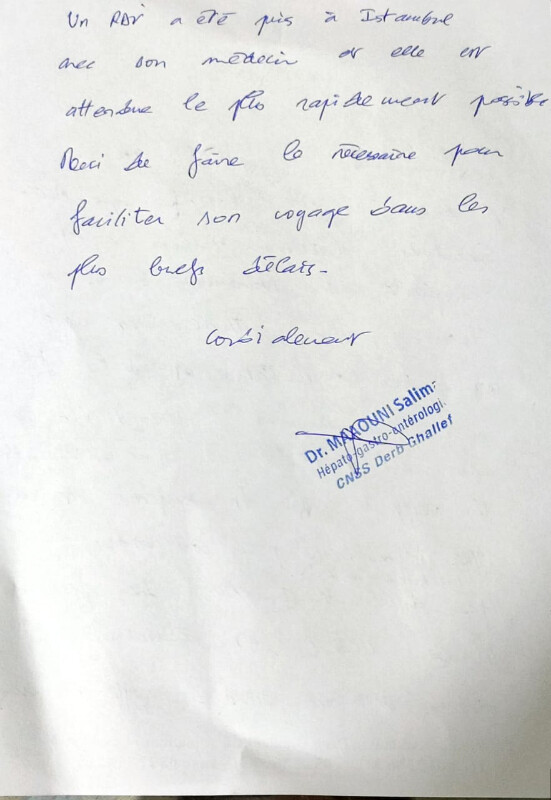 Un RDV a été pris à Istambul
avec son médecin et elle est
attendue le plus rapidement possible
Merci de faire le nécessaire pour
faciliter son voyage dans les
plus brefs délais.
Cordialement
Dr. MAAOUNI Salim
Hépato-gastro-entérologi
CNSS Derb Ghallef